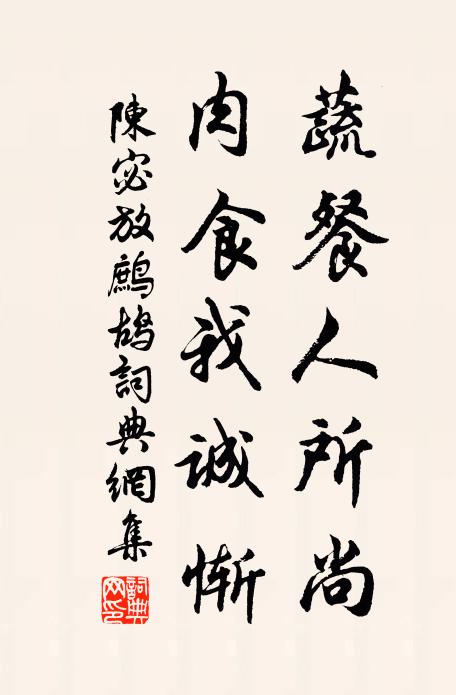 蔬餐人所尚
肉食我诚惭
陳宓放鷓鴣詞典網集
詞典网印